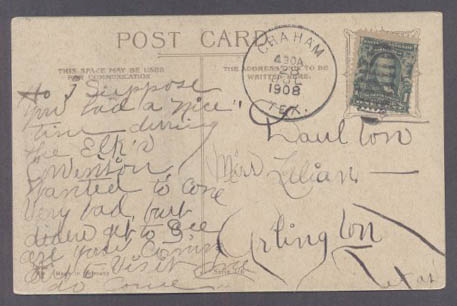 POST CARD
THIS SPACE MAY BE USED
FOR COMMUNICATION
THE ADDRESS TO BE
WRITTEN HERE.
GRAHAM
430A
1908
TEX.
I Suppose
you had a "nice"
time during
the Elk's
wanted to come
Very bad, but
didn't get to. See
are your Coming
to Visit
Miss Lilian
Arlington
Texas